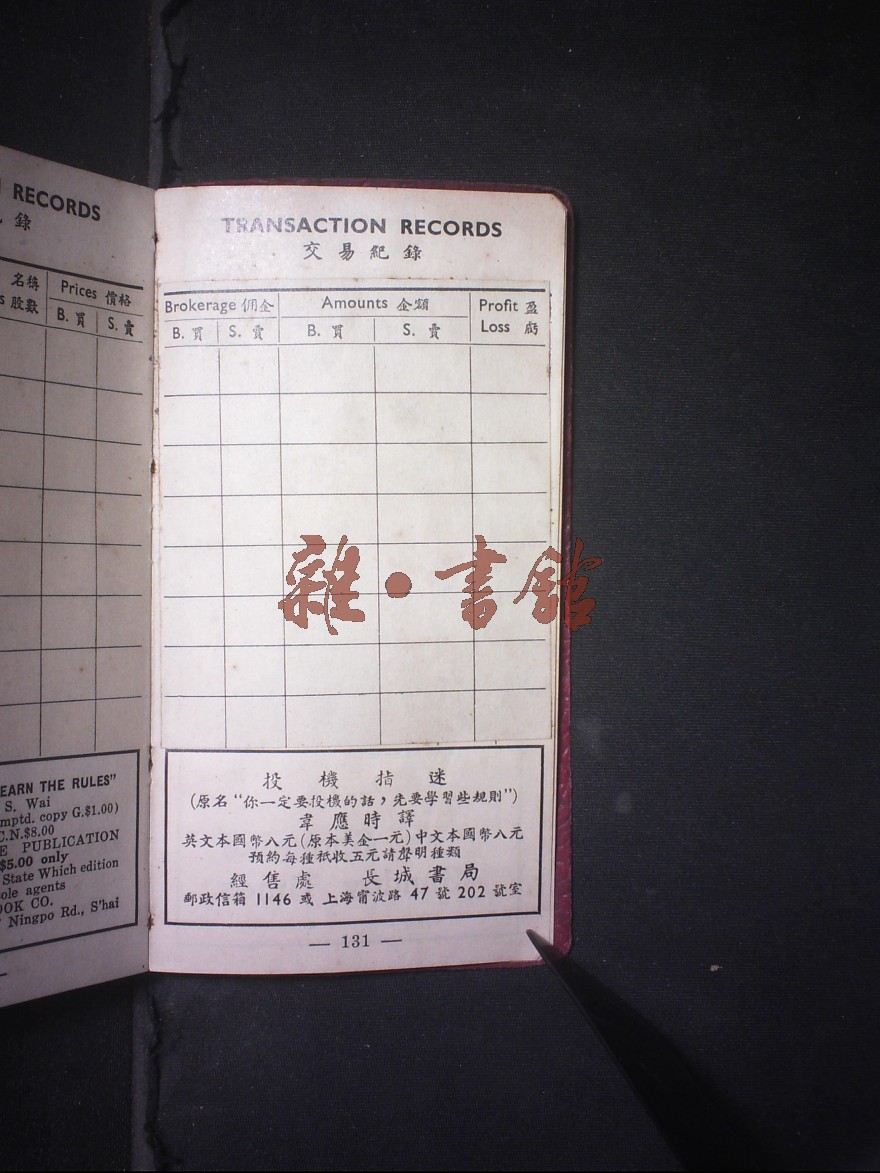 RECORDS
錄
名稱
Prices 價格
股數
B. 買
S. 賣
EARN THE RULES"
S. Wai
mptd. copy G.$1.00)
C.N.$8.00
E PUBLICATION
$5.00 only
State Which edition
ole agents
OOK CO.
Ningpo Rd., S'hai
TRANSACTION RECORDS
交易紀錄
Brokerage 佣金
Amounts 金額
Profit 盈
Loss 虧
B. 買
S. 賣
B. 買
S. 賣
雜•書館
投機指迷
(原名"你一定要投機的話，先要學習些規則")
韋應時譯
英文本國幣八元(原本美金一元)中文本國幣八元
預約每種祇收五元請聲明種類
經售處 長城書局
郵政信箱 1146 或上海甯波路 47 號 202 號室
— 131 —